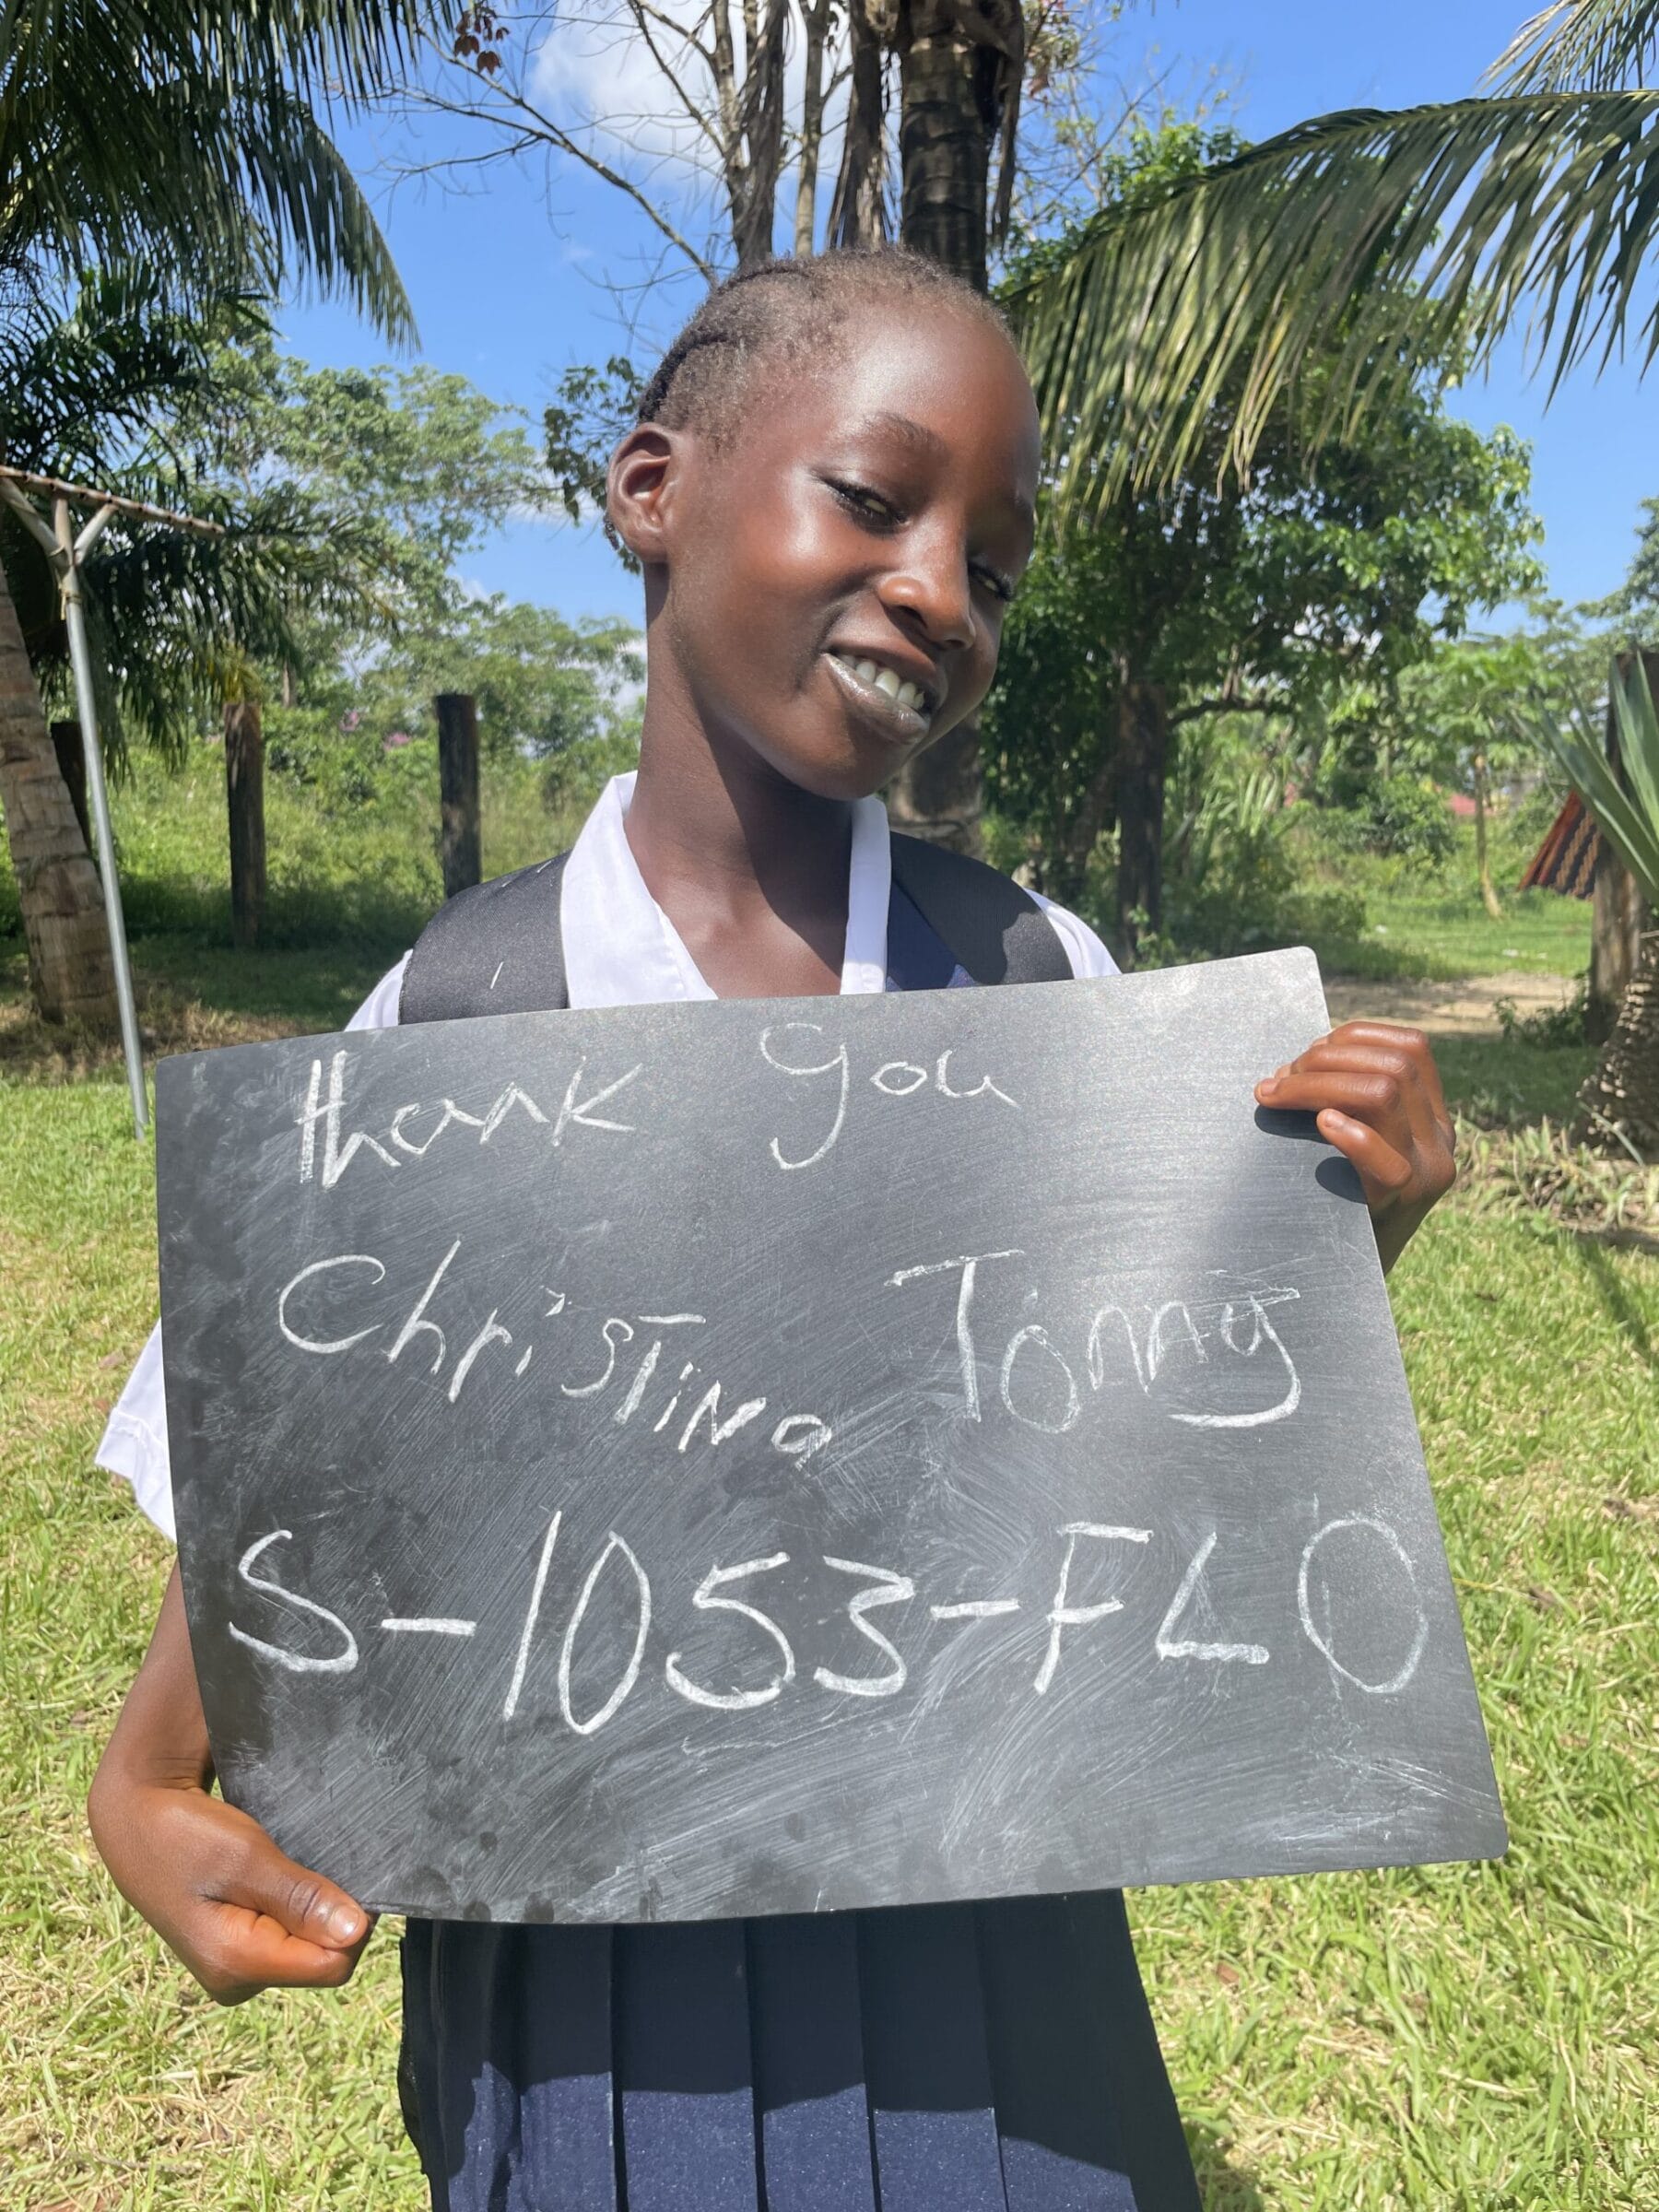 thank you
Christina Tonny
S-1053-FLO